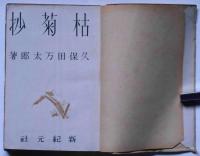 抄菊枯
著郎太万田保久
社元紀新